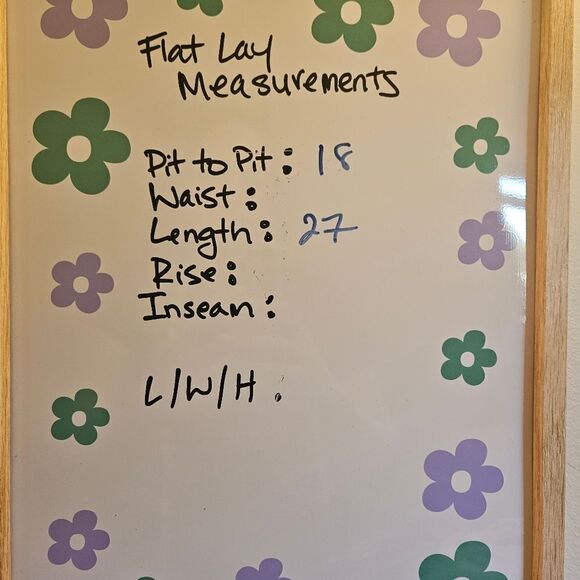 Flat Lay
Measurements
Pit to Pit: 18
Waist:
Length: 27
Rise:
Inseam:
L/W/H.